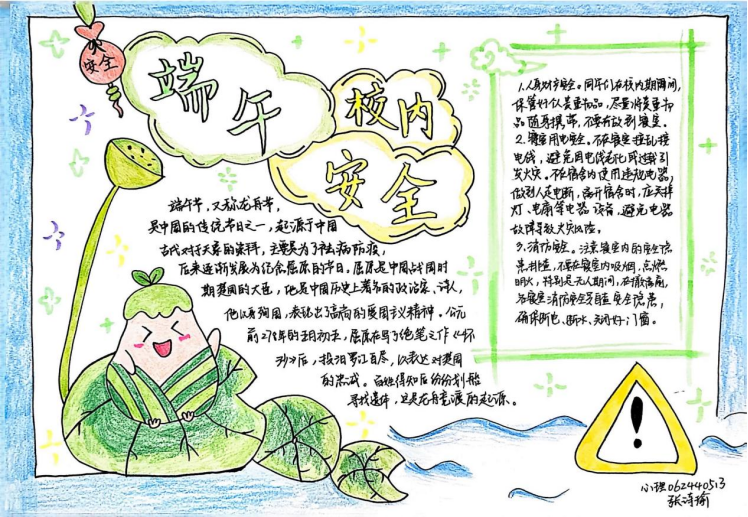 安全
端午
校内
安全
端午节，又称龙舟节，
是中国的传统节日之一，起源于中国
古代对于天象的崇拜，主要是为了祛病防疫，
后来逐渐发展为纪念屈原的节日。屈原是中国战国时
期楚国的大臣，他是中国历史上著名的政治家、诗人，
他以身殉国，表达出了高尚的爱国主义精神。公元
前278年的五月初五，屈原在写了绝笔之作《怀
沙》后，投汨罗江自尽，以表达对楚国
的忠诚。百姓得知后纷纷划船
寻找遗体，这是龙舟竞渡的起源。
1.人身财产安全。同学们在校内期间，
保管好个人贵重物品，尽量将贵重物
品随身携带，不要存放到寝室。
2.寝室用电安全。不在寝室拉乱接
电线，避免用电线老化或过载引
发火灾。不在宿舍内使用违规电器，
做到人走电断，离开宿舍时，应关掉
灯、电扇等电器设备，避免电器
故障导致火灾风险。
3.消防安全。注意寝室内的安全隐
患排查，不要在寝室内吸烟、点燃
明火，特别是无人期间，在撤离前，
为寝室消防安全自查安全隐患，
确保断电、断水、关闭好门窗。
小理062440513
张诗瑜